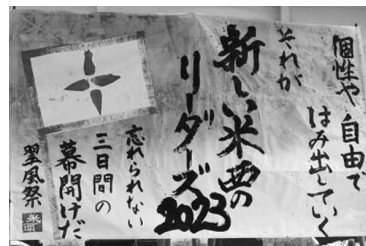 個性や自由で
はみ出していく
それが
新しい米西の
リーダーズ
2023
忘れられない
三日間の
幕開けだ
翠風祭
米西